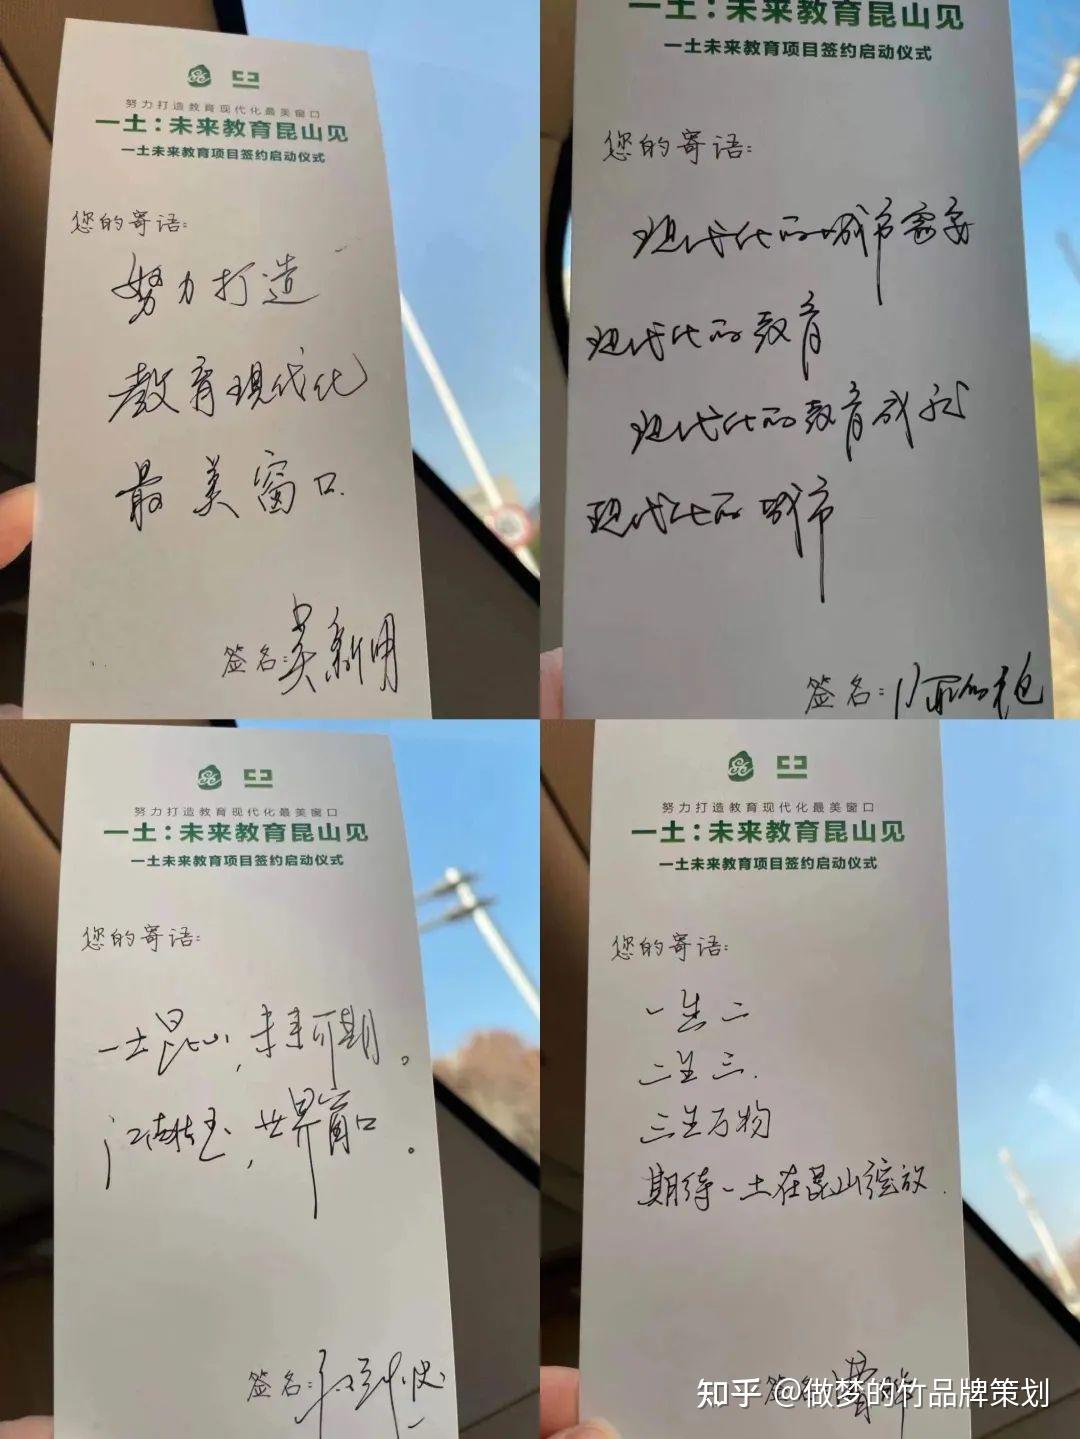 努力打造教育现代化最美窗口
一土：未来教育昆山见
一土未来教育项目签约启动仪式
您的寄语：
努力打造
教育现代化
最美窗口.
签名：吴新明
一土：未来教育昆山见
一土未来教育项目签约启动仪式
您的寄语：
现代化的城市需要
现代化的教育
现代化的教育成就
现代化的城市
签名：
努力打造教育现代化最美窗口
一土：未来教育昆山见
一土未来教育项目签约启动仪式
您的寄语：
一土昆山，未来可期。
江南，世界窗口。
签名：
努力打造教育现代化最美窗口
一土：未来教育昆山见
一土未来教育项目签约启动仪式
您的寄语：
一生二
二生三.
三生万物
期待一土在昆山绽放.
签名：
知乎 @做梦的竹品牌策划